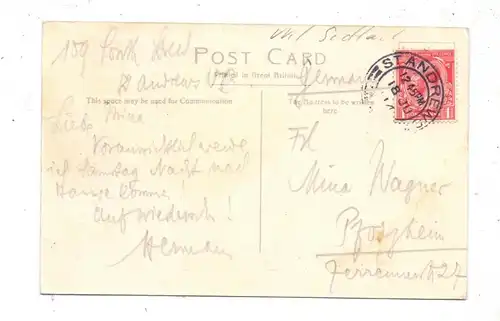 159 South Street
St Andrews
POST CARD
Printed in Great Britain
Germany
This space may be used for Communication
The Address to be written here.
ST ANDREWS
12.45 PM
18 JU
1
Liebe Mina
Voraussichtlich werde
ich Samstag Nacht nach
Hause komme!
Auf wiederseh!
Hermann
Frl
Mina Wagner
Pforzheim
27